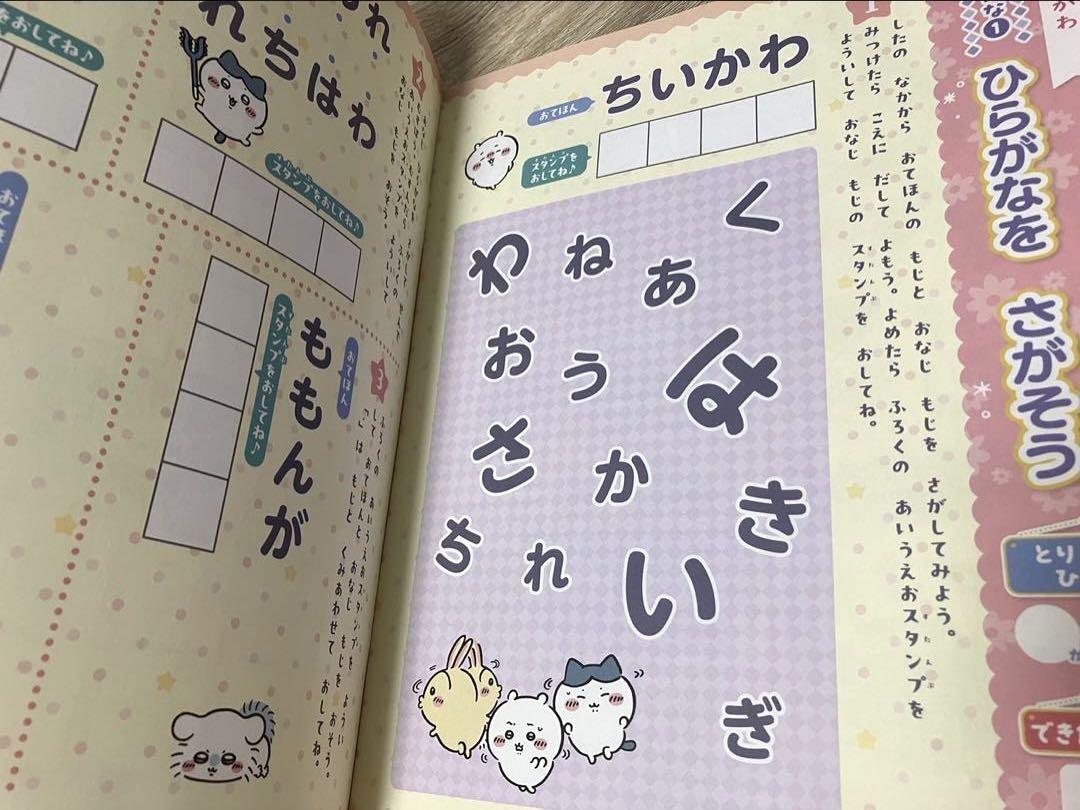 ひらがなを さがそう
とり
でき
1
したの なかから おてほんの もじと おなじ もじを さがしてみよう。
みつけたら こえに だして よもう。よめたら ふろくの あいうえおスタンプを
よういして おなじ もじの スタンプを おしてね。
おてほん
ちいかわ
スタンプを
おしてね♪
く
わ
ね
あ
お
う
は
さ
か
き
ち
れ
い
ぎ
2
れちはわ
スタンプをおしてね♪
3
ふろくの あいうえおスタンプを ようい
して おてほんと おなじ もじを おそう。
「゛」は もじと くみあわせて おしてね。
おてほん
ももんが
スタンプをおしてね♪
をおしてね♪
おてほ